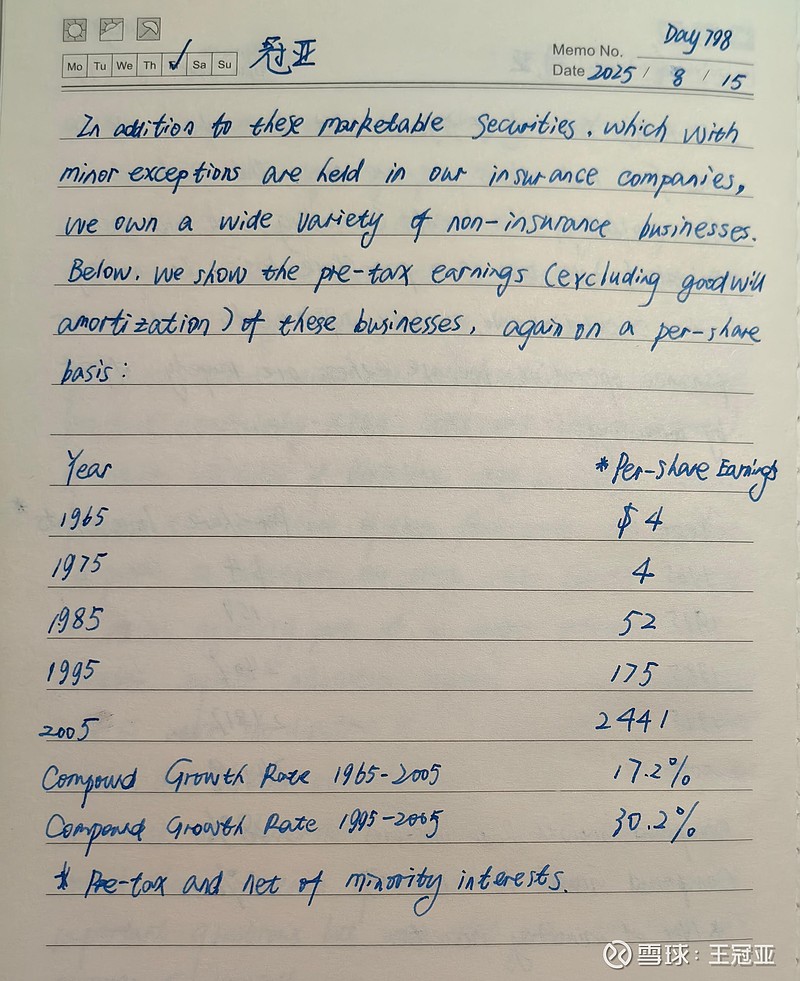 Mo Tu We Th Sa Su 冠亚
Memo No. Day 798
Date 2025 / 8 / 15
In addition to these marketable securities, which with
minor exceptions are held in our insurance companies,
we own a wide variety of non-insurance businesses.
Below, we show the pre-tax earnings (excluding goodwill
amortization) of these businesses, again on a per-share
basis:
Year *Per-share Earnings
1965 $ 4
1975 4
1985 52
1995 175
2005 2441
Compound Growth Rate 1965-2005 17.2%
Compound Growth Rate 1995-2005 30.2%
* Pre-tax and net of minority interests.
雪球:王冠亚